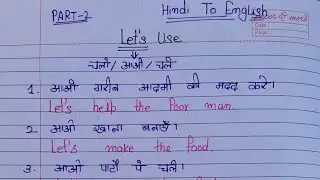 PART-2
Hindi To English
Let's Use
चलो/आओ/चले
1. आओ गरीब आदमी की मदद करे।
Let's help the Poor man.
2. आओ खाना बनाएँ।
Let's make the food.
3. आओ पार्टी पे चले।